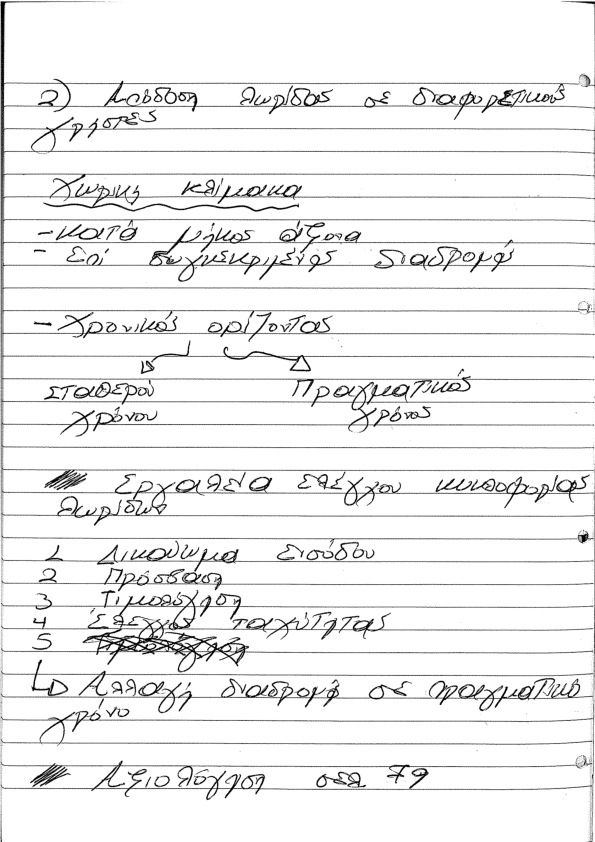 2) Απόδοση λωρίδας σε διαφορετικούς
χρήστες
Χωρική κλίμακα
- κατά μήκος άξονα
- Επί συγκεκριμένης διαδρομής
- Χρονικός ορίζοντας
Σταθερού Πραγματικός
χρόνου χρόνος
Εργαλεία ελέγχου κυκλοφορίας
λωρίδων
1 Δικαίωμα εισόδου
2 Πρόσβαση
3 Τιμολόγηση
4 Έλεγχος ταχύτητας
5
Αλλαγή διαδρομή σε πραγματικό
χρόνο
Αξιολόγηση σελ 79